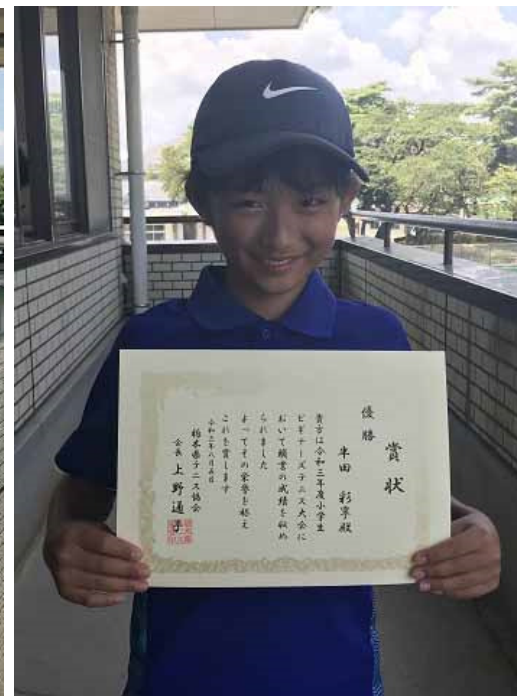 賞状
優勝
半田 彩寧殿
貴方は令和三年度小学生
ビギナーズテニス大会に
おいて頭書の成績を収め
られました
よってその栄誉を称え
これを賞します
令和三年八月五日
栃木県テニス協会
会長 上野通子